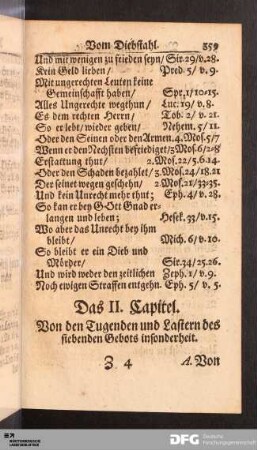 Vom Diebstahl. 359
Und mit wenigen zu frieden seyn/ Sir. 29/v.28.
Kein Geld lieben/ Pred. 5/ v.9.
Mit ungerechten Leuten keine
Gemeinschafft haben/ Spr, 1/10-15.
Alles Ungerechte wegthun/ Luc. 19/ v.8.
Es dem rechten Herrn/ Tob. 2/ v.21.
So er lebt/ wieder geben/ Nehem. 5/ 11.
Oder den Seinen oder den Armen. 4. Mos. 5/7
Wenn er den Nechsten befriediget/ 3 Mos. 6/2-8
Erstattung thut/ 2. Mos. 22/5.6.14-
Oder den Schaden bezahlet/ 3. Mos. 24/18.21
Der seinet wegen geschehn/ 2 Mos. 21/33-35.
Und kein Unrecht mehr thut; Eph. 4/ v.28.
So kan er bey GOtt Gnad er-
langen und leben; Hesek. 33/ v.15.
Wo aber das Unrecht bey ihm
bleibt/ Mich. 6/ v.10.
So bleibt er ein Dieb und
Mörder/ Sir. 34/ 25.26.
Und wird weder den zeitlichen Zeph. 1/ v.9.
Noch ewigen Straffen entgehn. Eph. 5/ v.5.
Das II. Capitel.
Von den Tugenden und Lastern des
siebenden Gebots insonderheit.
Z 4 A. Von
DFG